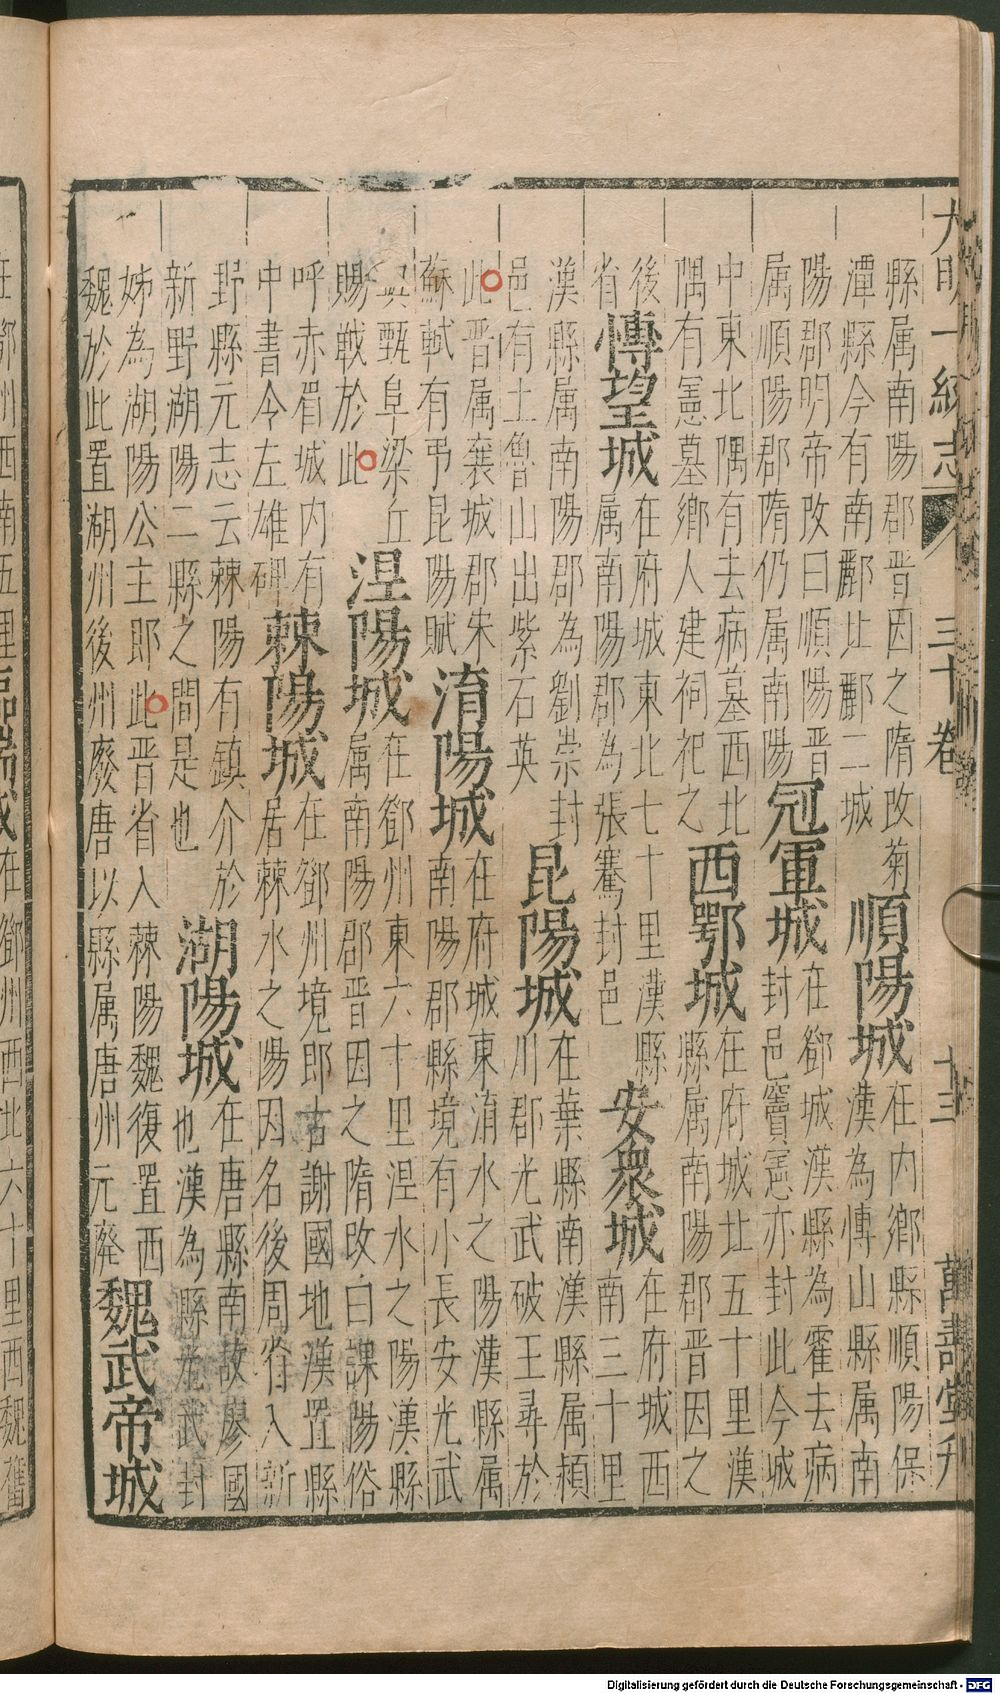 大明一統志 三十卷 十三 萬壽堂刊
縣属南陽郡晉因之隋改菊
潭縣今有南酈北酈二城
順陽城
在内鄉縣順陽保
漢為博山縣属南
陽郡明帝改曰順陽晉
属順陽郡隋仍属南陽
冠軍城
在鄧城漢縣為霍去病
封邑竇憲亦封此今城
中東北隅有去病墓西北
隅有憲墓鄉人建祠祀之
西鄂城
在府城北五十里漢
縣属南陽郡晉因之
後
省
博望城
在府城東北七十里漢縣
属南陽郡為張騫封邑
安衆城
在府城西
南三十里
漢縣属南陽郡為劉崇封
邑有土魯山出紫石英
昆陽城
在葉縣南漢縣属潁
川郡光武破王尋於
此晉属襄城郡朱
蘇軾有弔昆陽賦
淯陽城
在府城東淯水之陽漢縣属
南陽郡縣境有小長安光武
與甄阜梁丘
賜戰於此
涅陽城
在鄧州東六十里涅水之陽漢縣
属南陽郡晉因之隋改曰課陽俗
呼赤眉城内有
中書令左雄碑
棘陽城
在鄧州境郎古謝國地漢置縣
居棘水之陽因名後周省入新
野縣元志云棘陽有鎮介於
新野湖陽二縣之間是也
湖陽城
在唐縣南故廖國
也漢為縣光武封
姊為湖陽公主郎此晉省入棘陽魏復置西
魏於此置湖州後州廢唐以縣属唐州元廢
魏武帝城
在鄧州西南五里臨湍城在鄧州西北六十里西魏舊
Digitalisierung gefördert durch die Deutsche Forschungsgemeinschaft - DFG